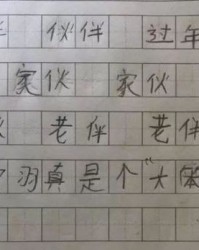 伙伴 过年
家伙 家伙
老伴 老伴
羽真是个“大笨